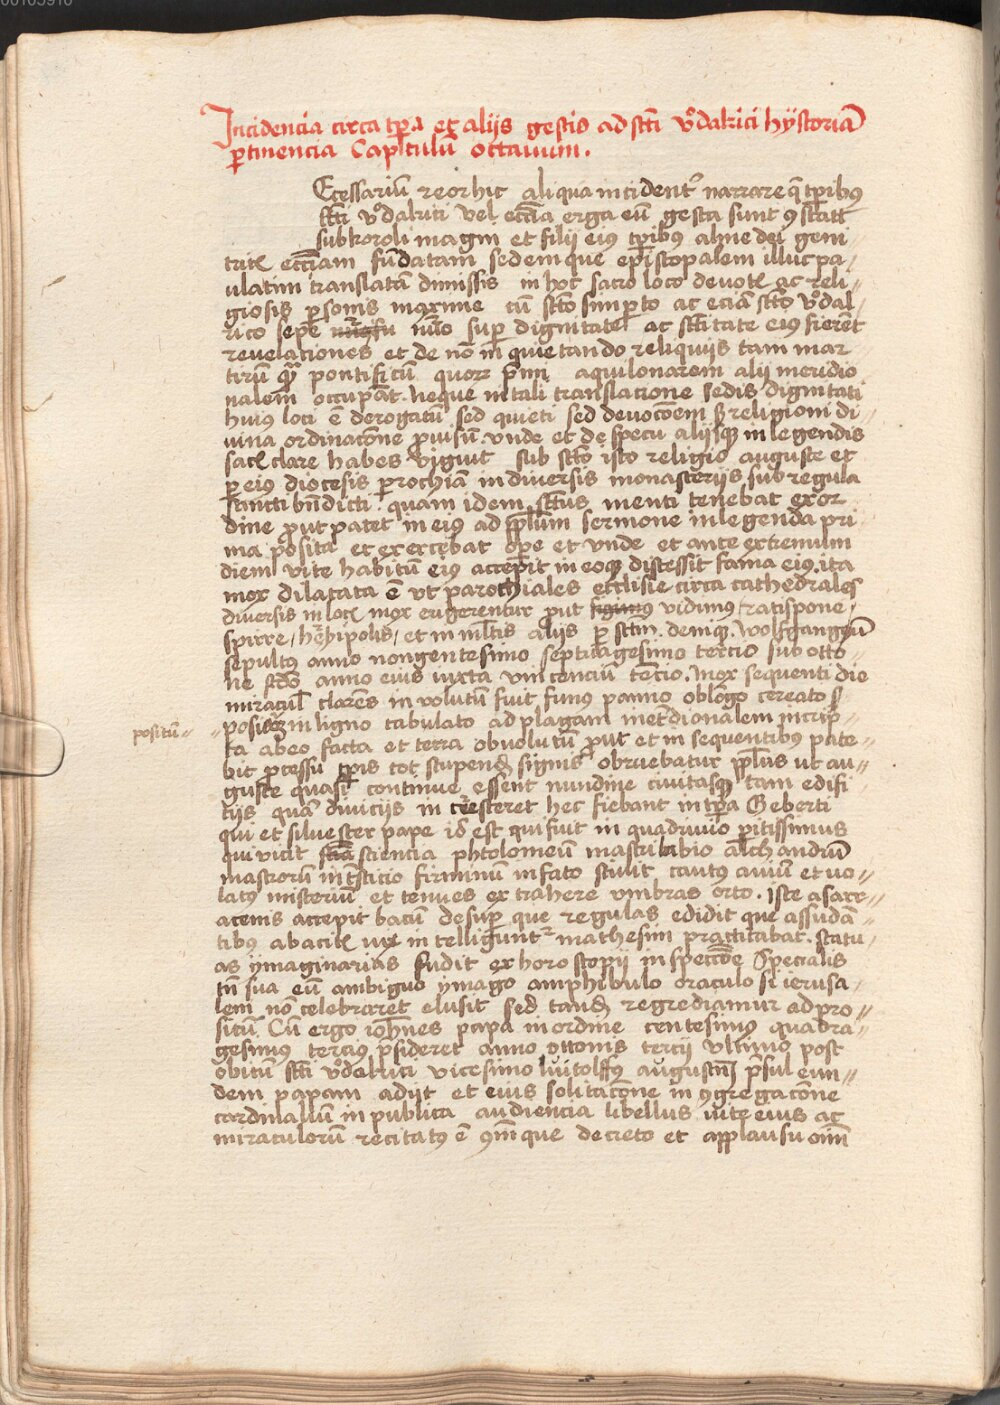 Incidencia circa tp̄a ex alijs gestis ad sct̄i vͦdalrici hÿstoriā
ꝑtinencia Capitulū octauum .
Ecessariū reor hic aliqua incident᷑ narrare q̄ tp̄ibꝰ
sct̄i vͦdalrici vel ecc̄ia erga eū gesta sunt
sub karoli magni et filii eiꝰ tp̄ibꝰ alme dei geni
tricꝭ ecc̄iam fūdatam sedemque ep̄iscopalem illuc pa
ulatim translatā dimissis in hoc sacro loco deuotꝭ ac reli
giosis ꝑsonis maxime cū sct̄o simp̄to ac eciā sct̄o vͦdal
rico sepe sup̱ dignitate ac sct̄itate eiꝰ fierēt
reuelaciones et de nō in quietando reliquijs tam mar
tirū qꝫ pontificū quorꝝ p̄mi aquilonarem alii meridio
nalem occupāt . neque in tali translacione sedis dignitati
huiꝰ loci ē derogatū sed quieti sed deuocōem ⁊ religioni di
uina ordinacōne ꝓuisū . vnde et de specu alijsqꝫ in legendis
satꝭ clare habes viguit sub sct̄o isto religio auguste et
ꝑ eiꝰ diocesis ꝑrochiā in diuersis monasterijs sub regula
sancti bn̄dicti quam idem sct̄us menti tenebat exor
dine ꝓut patet in eiꝰ ad pp̄lum sermone in legenda pri
ma posita et exercebat ope et vnde et ante extremum
diem vite habitū eiꝰ accepit in eoqꝫ discessit fama eiꝰ ita
mox dilatata ē vt parochiales ecclisie circa cathedrales
diuersis in locꝭ mox erigerentur ꝓut vidimꝰ ratispone
spirre / hr̄bipolis / et in ml̄tis aliis ꝑ sct̄m . deniqꝫ . wolfgangū
sepultꝰ anno nongentesimo septuagesimo tercio sub otto
ne scd̄o anno eiꝰ iuxta vincenciū tercio . mox sequenti die
miracul' clarēs in volutū fuit funꝰ panno oblōgo cereato ⁊
posi in ligno tabulato ad plagam meridionalem inscrip
positū
ta ab eo facta et terra obuolutū ꝓut et in sequentibꝰ pate
bit ꝓcessu tp̄is tot stupend' signis obruebatur pp̄lus ut au
guste quasi continue essent nundine ciuitasqꝫ tam edifi
tijs quā diuicijs in cresceret hec fiebant in tp̄a Geberti
qui et siluester pape id est qui fuit in quadriuio ꝑitissimus
qui vicit sciencia phtolomeū in astrulabio alchandrū
in astrorū in t̄sticio firminū in fato sciuit cantꝰ auiū et uo
latꝰ misteriū et tenues extrahere vmbras orto . iste a sarr
acenis accepit bacū desup̱ que regulas edidit que assudā
tibꝰ abacitꝭ vix intelligunt᷑ mathesim practicabat . statu
as ÿmaginarias fudit ex horoscopij inspectōe specialis
tn̄ sua eū ambiguo ymago amphibulo oraculo si ierusa
lem nō celebraret elusit sed tand' regrediamur ad pro
situ . Cū ergo ioh̄nes papa in ordine centesimus quadra
gesimus tercius p̄sideret anno ottonis tercij vltimo post
obitū sct̄i vͦdalrici vicesimo luitolffꝰ augustn̄ p̄sul eun
dem papam adijt et eius solitacōne in ꝯgregacōne
cardinaliū in publica audiencia libellus vite eius ac
miraculorū recitatꝰ ē ꝯm̄que decreto et applausu oim̄